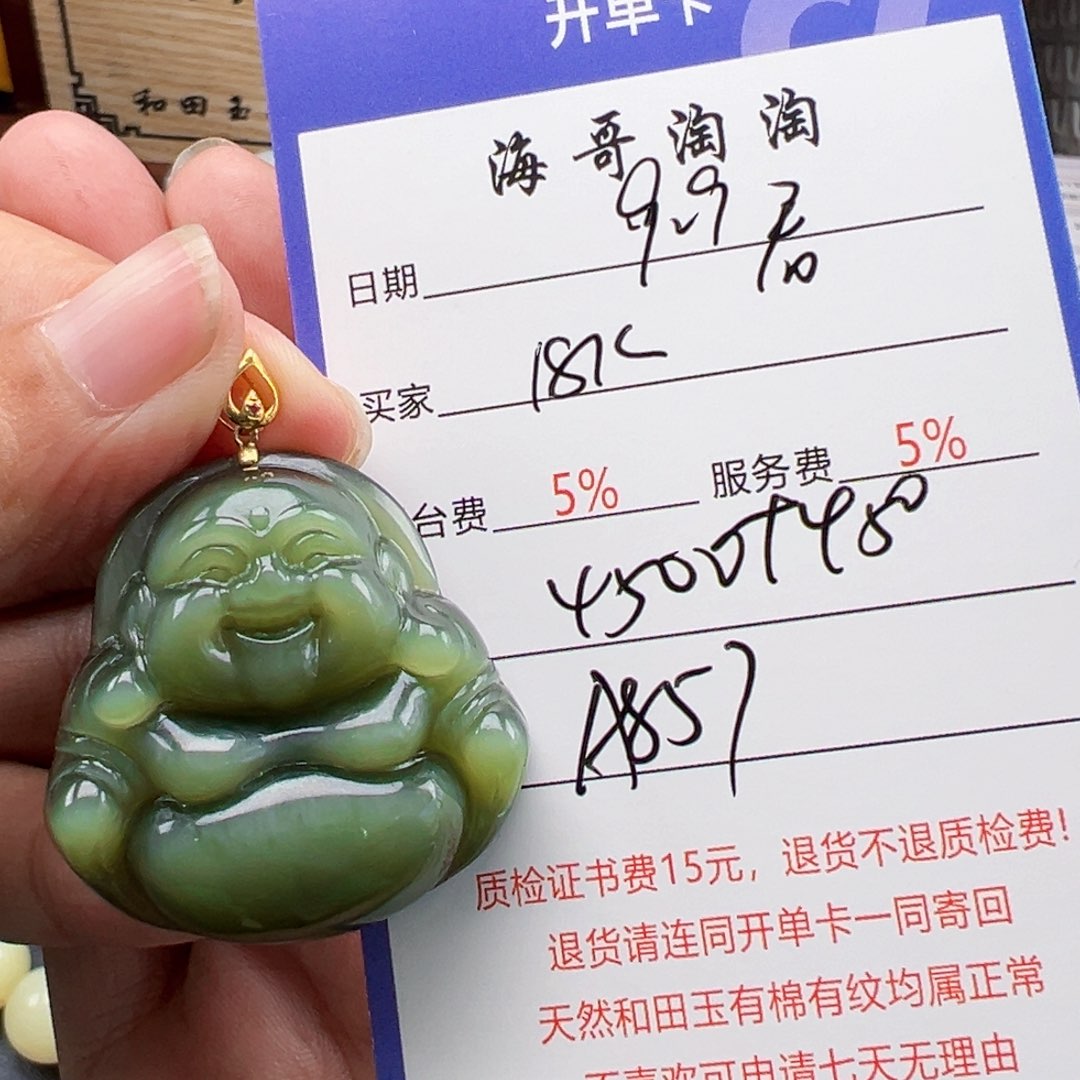 和田玉
开单卡
海哥淘淘
日期 9.9
买家 187C
台费 5% 服务费 5%
4500+480
A857
质检证书费15元，退货不退质检费！
退货请连同开单卡一同寄回
天然和田玉有棉有纹均属正常
不喜欢可申请七天无理由